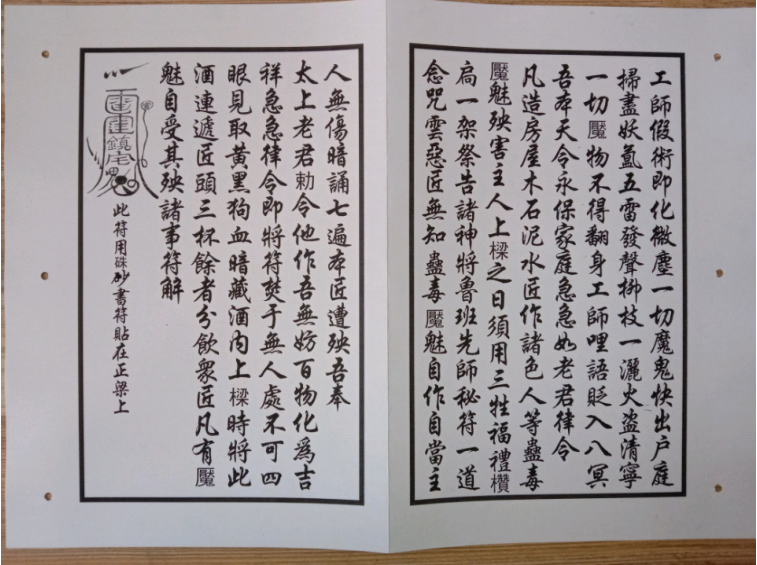 工師假術即化微塵一切魔鬼快出户庭
掃盡妖氣五雷發聲柳枝一灑火盗清寧
一切魘物不得翻身工師哩語貶入八冥
吾奉天令永保家庭急急如老君律令
凡造房屋木石泥水匠作諸色人等蠱毒
魘魅殃害主人上樑之日須用三牲福禮欑
扃一架祭告諸神將魯班先師秘符一道
念咒雲惡匠無知蠱毒魘魅自作自當主
人無傷暗誦七遍本匠遭殃吾奉
太上老君勅令他作吾無妨百物化爲吉
祥急急律令即將符焚于無人處不可四
眼見取黄黑狗血暗藏酒内上樑時將此
酒連遞匠頭三杯餘者分飲衆匠凡有魘
魅自受其殃諸事符解
鎮宅
此符用硃砂書符貼在正梁上